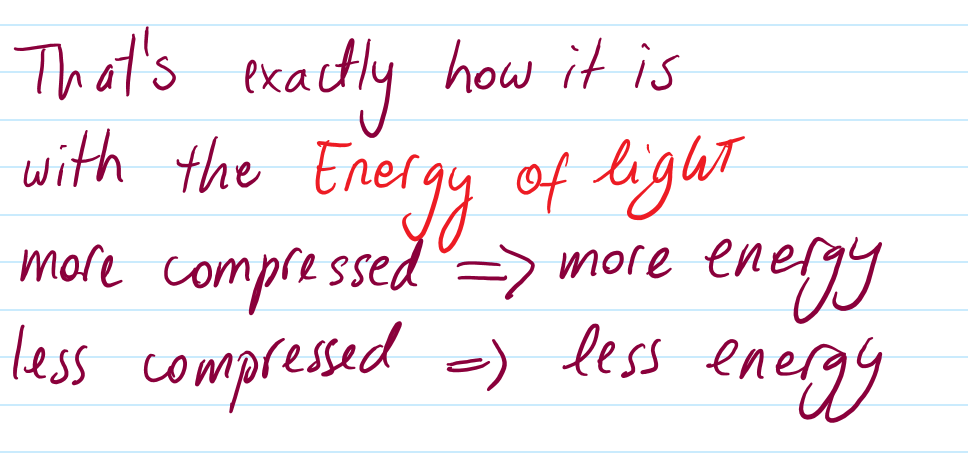 That's exactly how it is
with the Energy of light
more compressed => more energy
less compressed => less energy